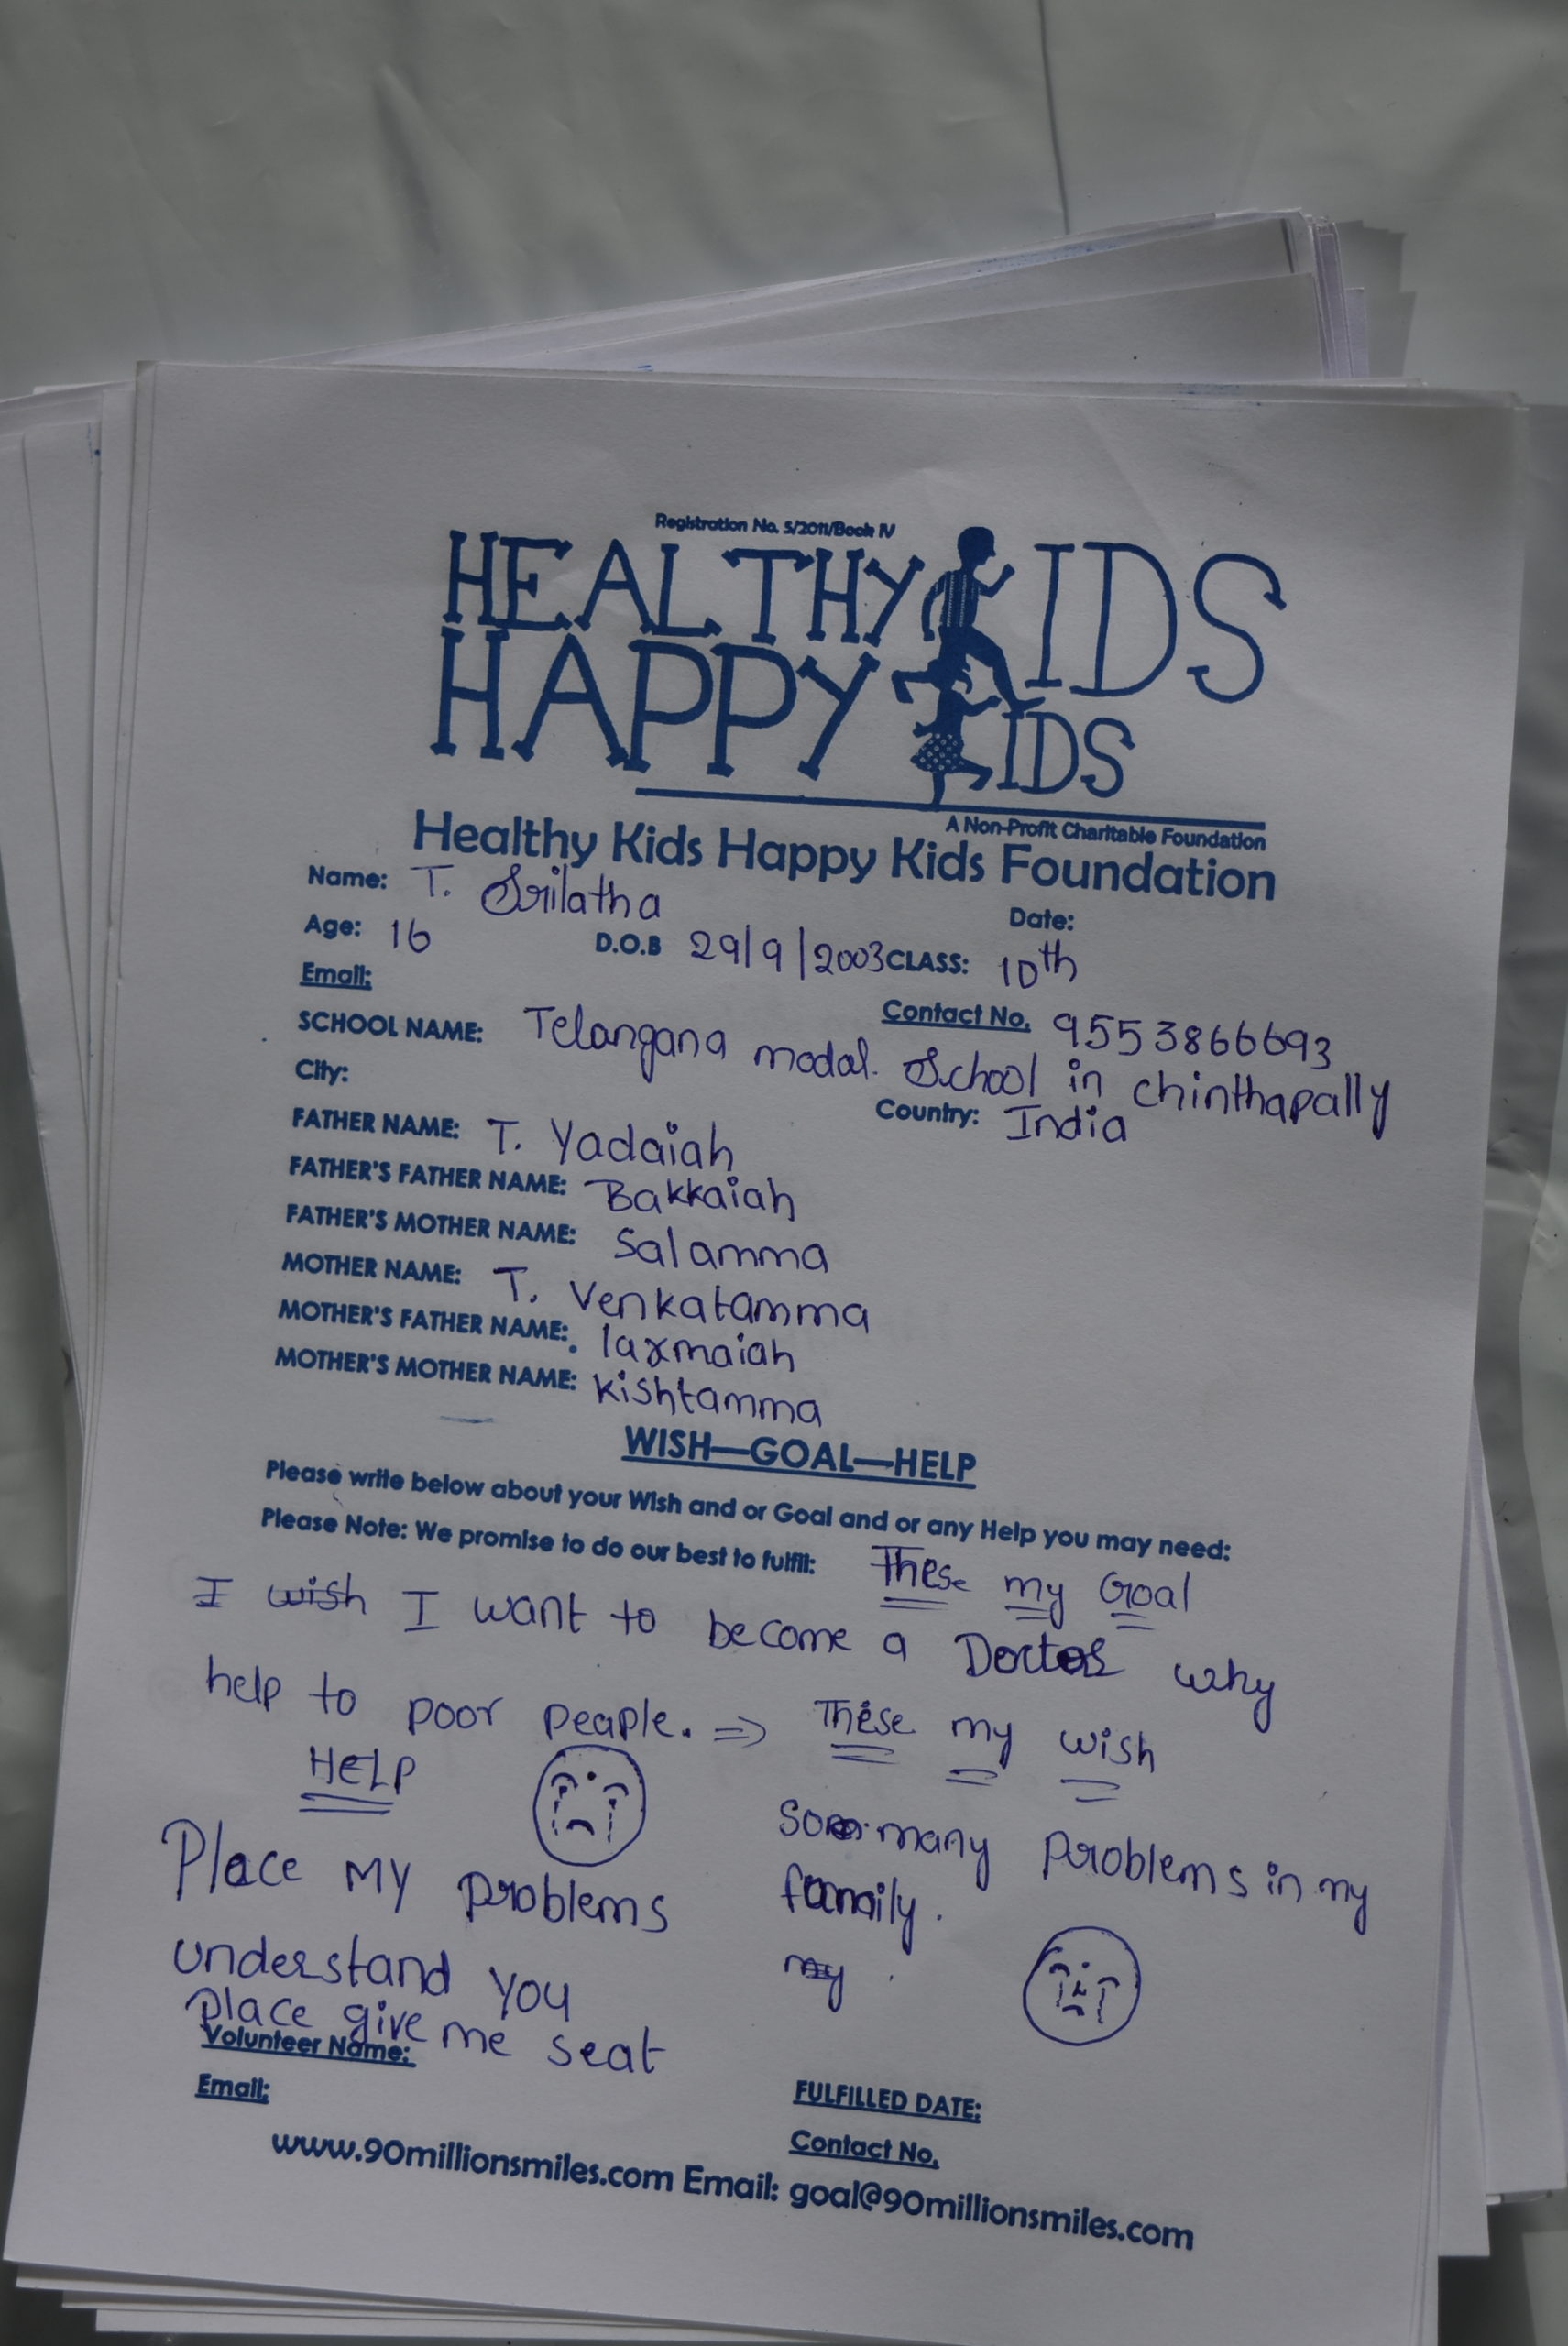 Registration No. 5/2011/Book IV
HEALTHY KIDS
HAPPY KIDS
A Non-Profit Charitable Foundation
Healthy Kids Happy Kids Foundation
Name: T. Srilatha
Date:
Age: 16 D.O.B 29/9/2003 CLASS: 10th
Email:
Contact No. 9553866693
SCHOOL NAME: Telangana modal. School in chinthapally
City:
Country: India
FATHER NAME: T. Yadaiah
FATHER'S FATHER NAME: Bakkaiah
FATHER'S MOTHER NAME: Salamma
MOTHER NAME: T. Venkatamma
MOTHER'S FATHER NAME: laxmaiah
MOTHER'S MOTHER NAME: kishtamma
WISH—GOAL—HELP
Please write below about your Wish and or Goal and or any Help you may need:
Please Note: We promise to do our best to fulfill: These my Goal
I wish I want to become a Doctor why
help to poor peaple. => These my wish
HELP
Place MY problems
understand you
place give me seat
So many problems in my
family.
my
Volunteer Name:
FULFILLED DATE:
Email:
Contact No.
www.90millionsmiles.com Email: goal@90millionsmiles.com